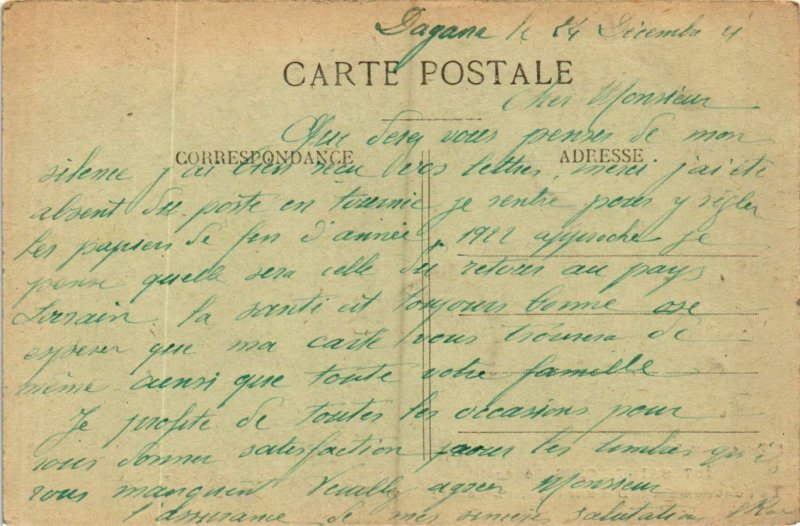 Dagana le 24 Décembre 21
CARTE POSTALE
Cher Monsieur
Que devez vous penser de mon
CORRESPONDANCE
ADRESSE
silence j'ai bien reçu vos lettres, merci j'ai été
absent du poste en tournée je rentre pour y régler
les papiers de fin d'année, 1922 approche je
pense quelle sera celle du retour au pays
Lorrain la santé est toujours bonne ose
esperer que ma carte vous trouvera de
même ainsi que toute votre famille
Je profite de toutes les occasions pour
vous donner satisfaction pour les timbres qui
vous manquent Veuillez agréer Monsieur
l'assurance de mes sincères salutations